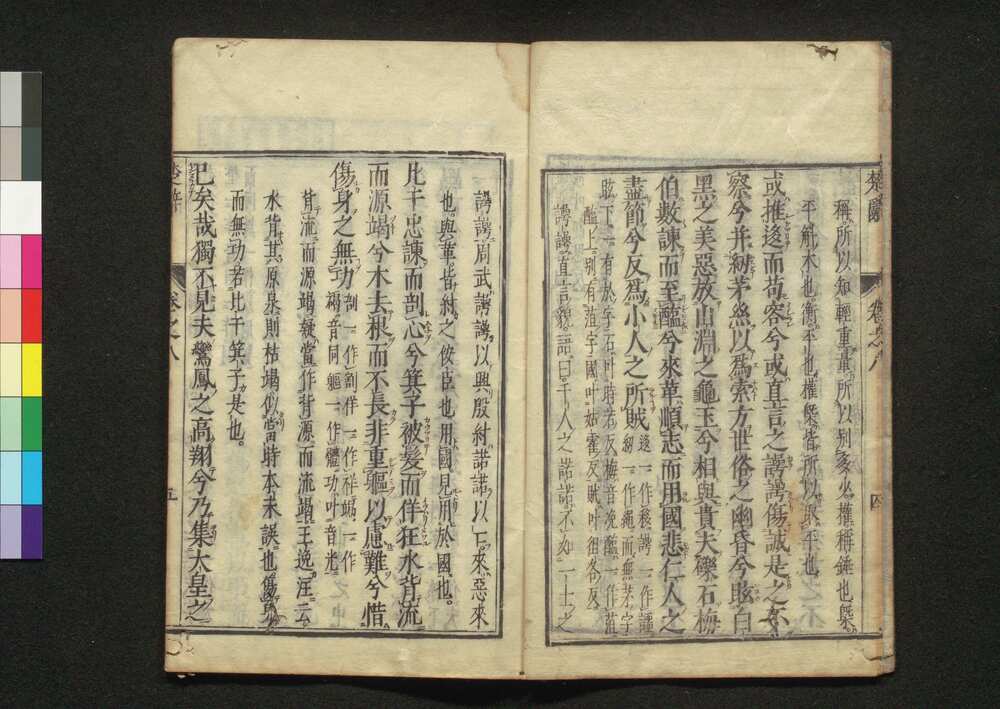 楚辭　卷之八　四
稱所以知輕重重所以別多少權稱錘也槩
平斛木也衡平也權槩皆所以取平也
或推迻而苟容兮或直言之諤諤傷誠是之不
察兮并紉茅絲以爲索方世俗之幽昏兮眩白
黑之美惡放山淵之龜玉兮相與貴夫礫石梅
伯數諫而至醢兮來革順志而用國悲仁人之
盡節兮反爲小人之所賊
迻一作移諤一作謳
紉一作繩而無茅字
眩下一有於字石叶時若反梅音浼醢一作菹
醢上別有菹字國叶姑霍反賊叶徂各反
諤諤直言貌語曰千人之諾諾不如一士之
諤諤周武諤諤以興殷紂諾諾以亡來惡來
也與革皆紂之佞臣也用國見用於國也
比干忠諫而剖心兮箕子被髮而佯狂水背流
而源竭兮木去根而不長非重軀以慮難兮惜
傷身之無功
剖一作劀佯一作祥竭一作
褐音同軀一作體功叶音光
背流而源竭疑當作背源而流竭王逸注云
水背其原泉則枯竭似當時本未誤也
而無功若比干箕子是也
巳矣哉獨不見夫鸞鳳之高翔兮乃集太皇之
楚辭　卷之八　五